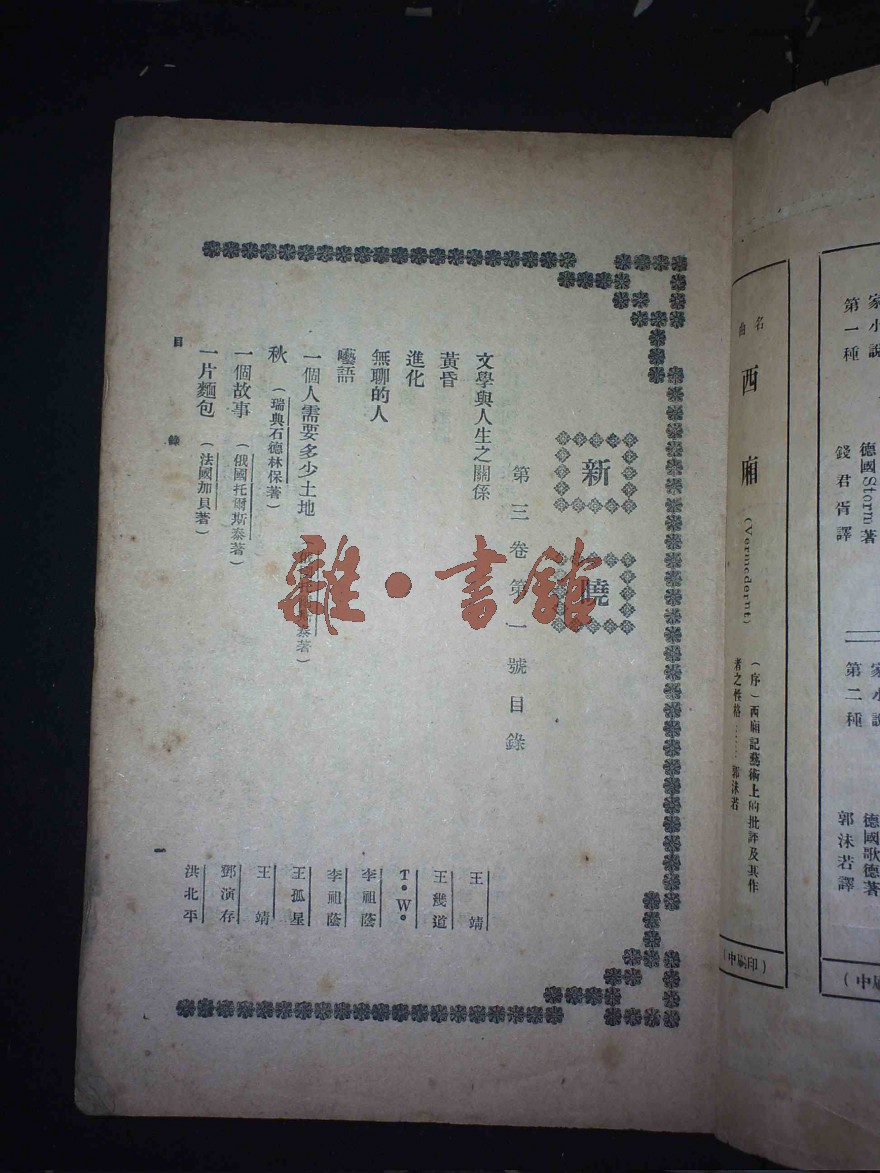 家小說
第一種
德國Storm著
錢君胥譯
家小說
第二種
德國歌德著
郭沫若譯
名曲
西廂
(Vermodernt)
(序)西廂記藝術上的批評及其作
者之性格……郭沫若
(中刷印)
新曉
第三卷第一號目錄
文學與人生之關係 王靖
黃昏 王幾道
進化 T.W.
無聊的人 李祖蔭
囈語 李祖蔭
一個人需要多少土地 泰著) 王孤星
秋 (瑞典石德林保著) 王靖
一個故事 (俄國托爾斯泰著) 鄧演存
一片麵包 (法國加貝著) 洪北平
目錄
一
雜·書館